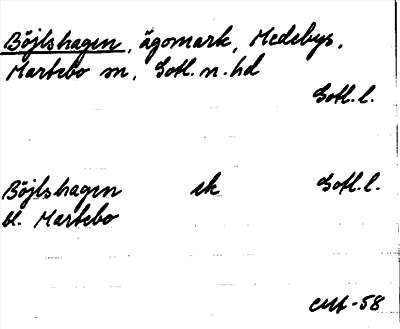 Böjlshagen, ägomark, Medebys,
Martebo sn, Gotl. n. hd
Gotl. l.
Böjlshagen ek Gotl. l.
bl. Martebo
-58